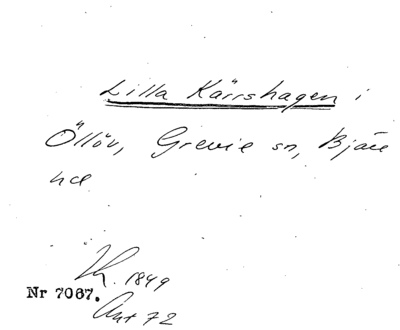 Lilla Kärrshagen i
Öllöv, Grevie sn, Bjäre
hd
1849
Nr 7067.
Akt 72